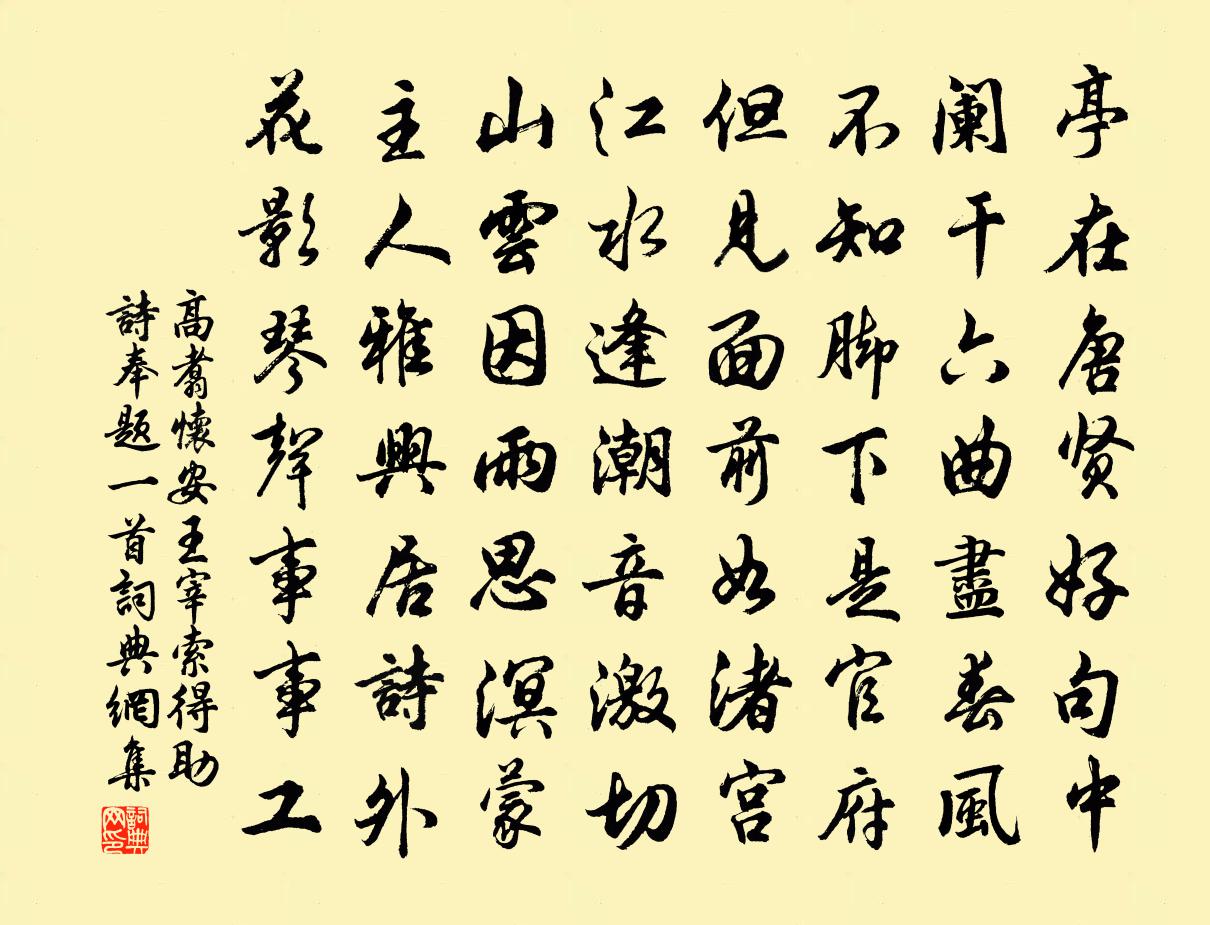 亭在唐贤好句中
阑干六曲盡春風
不知脚下是官府
但見面前如渚宫
江水逢潮音激切
山雲因雨思溟蒙
主人雅興居詩外
花影琴聲事事工
高翥懷安王宰索得助
詩奉題一首詞典網集
詞典網印